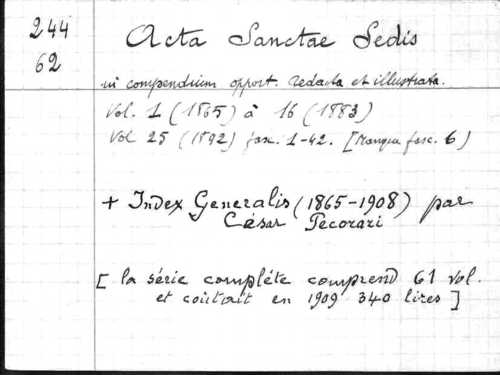 244
62
Acta Sanctae Sedis
in compendium opport. redacta et illustrata.
Vol. 1 (1865) à 16 (1883)
Vol 25 (1892) fasc. 1-42. [Manque fasc. 6)
+ Index Generalis (1865-1908) par
César Pecorari
[ la série complète comprend 61 vol.
et coûtait en 1909 340 lires ]